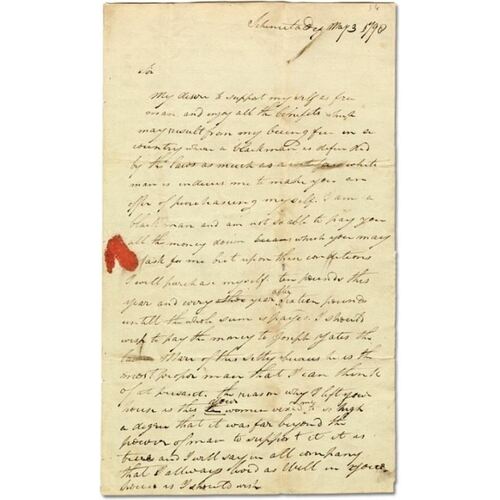 Schenectady May 3 1798
Sir
My desire to support myself as free
man and enjoy all the benefits which
may result from my being free in a
country where a blackman is defended
by the laws as much as a white
man is induces me to make you an
offer of purchasing myself. I am a
black man and am not able to pay you
all the money down which you may
ask for me but upon these conditions
I will purchase myself. ten pounds this
year and every year after fifteen pounds
untill the whole sum is payed. I should
wish to pay the money to Joseph Yates the
Mare of this sitty because he is the
most propor man that I can think
of at present. The reason why I left your
house is this your woman vexed me to so high
a degree that it was far beyond the
power of man to support it it is
true and I will say in all company
that I allways lived as well in your
house as I should wish